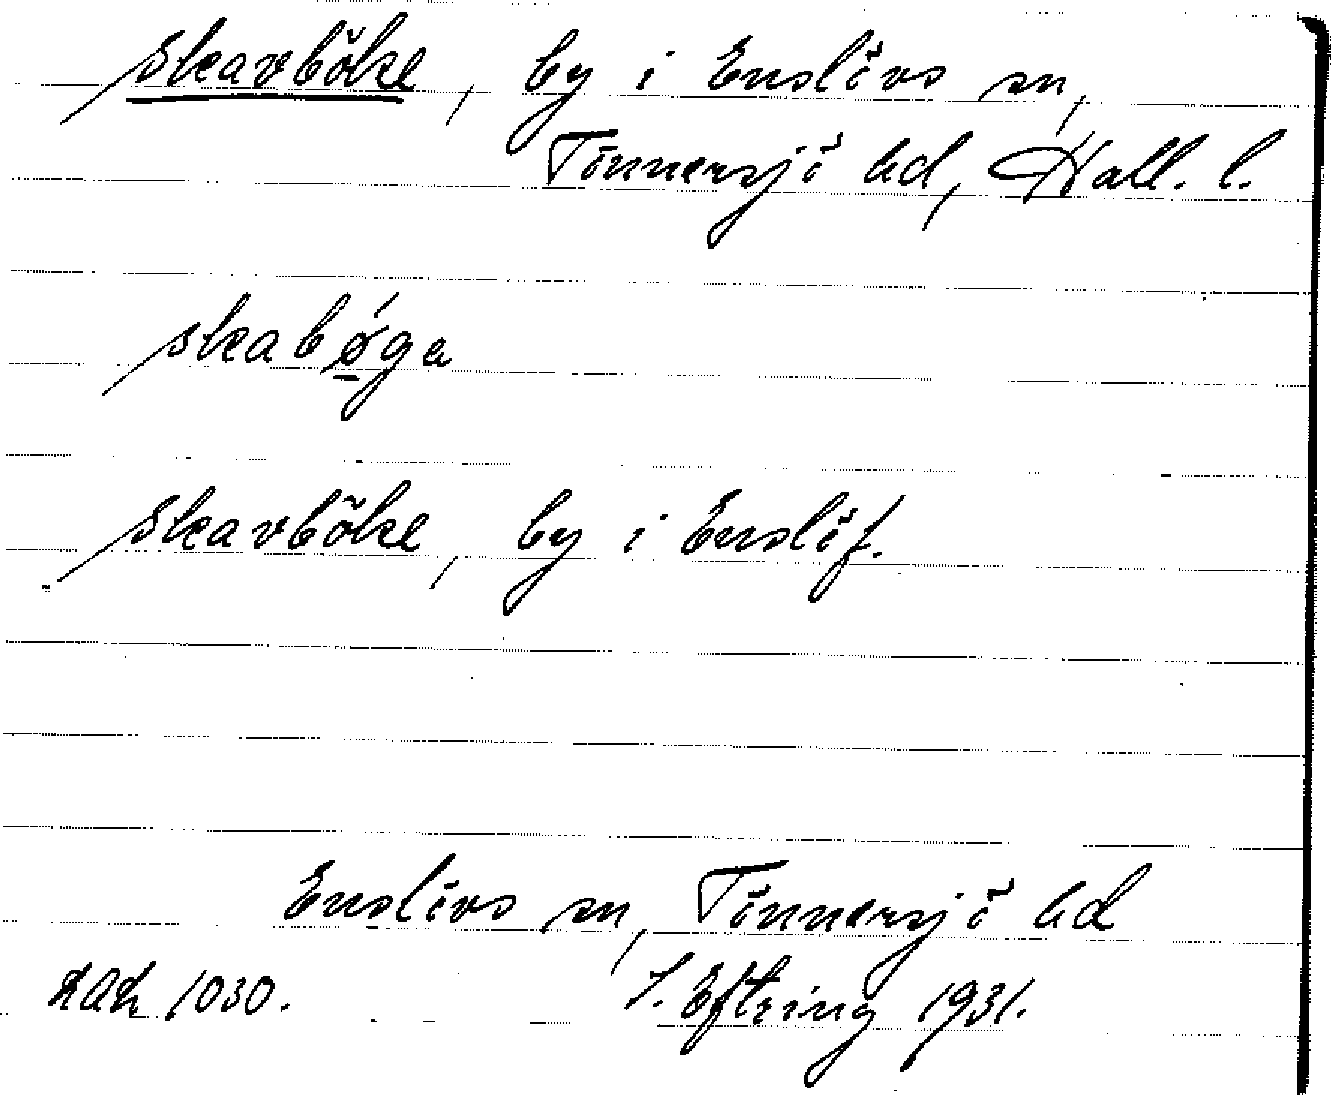 Skavböke, by i Enslövs sn,
Tönnersjö hd, Hall. l.
skabǿ̱ga
Skavböke, by i Enslöf.
Enslövs sn, Tönnersjö hd
1030. S. Eftring 1931.